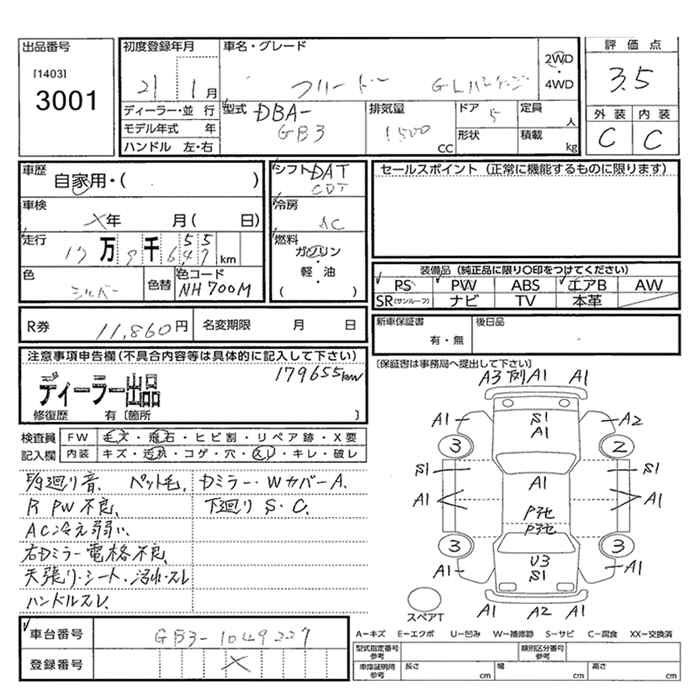 出品番号
[1403]
3001
初度登録年月
21年 1月
車名・グレード
フリード GLパッケージ
2WD
4WD
評価点
3.5
外装 内装
C C
ディーラー・並行
モデル年式 年
ハンドル 左・右
型式 DBA-
GB3
排気量
1500
CC
ドア 5
形状
定員
人
積載
kg
車歴
自家用・( )
車検
X年 月( 日)
走行
万 千
km
色
シルバー
色替
色コード
NH700M
シフト DAT
CDT
冷房
AC
燃料
ガソリン
・
軽・油
( )
セールスポイント (正常に機能するものに限ります)
装備品 (純正品に限り○印をつけてください)
PS PW ABS エアB AW
SR(サンルーフ) ナビ TV 本革
R券
11,860円
名変期限 月 日
新車保証書
有・無
後日品
・
[保証書は事務局へ提出して下さい]
注意事項申告欄(不具合内容等は具体的に記入して下さい)
179655km
ディーラー出品
修復歴 有〔箇所 〕
検査員
記入欄
FW キズ・飛石・ヒビ割・リペア跡・X要
内装 キズ・汚れ・コゲ・穴・スレ・キレ・破レ
廻り音、 ペット毛、 Dミラー・WカバーA、
R PW不良、 下廻りS・C、
AC冷え弱い、
右Dミラー電格不良、
天張り・シート・汚れ・スレ
ハンドルスレ、
A3 A1 A1
A1 S1 A2
A1
3 2
S1 S1
A1 A1 A1
P3
P3
3 3
U3
A1 S1 A1
スペアT
A1 A2 A1
車台番号 GB3-1049227
登録番号 X
A-キズ E-エクボ U-凹み W-補修跡 S-サビ C-腐食 XX-交換済
型式指定番号
参考
類別区分番号
参考
車庫証明時
参考
長さ
cm
幅
cm
高さ
cm